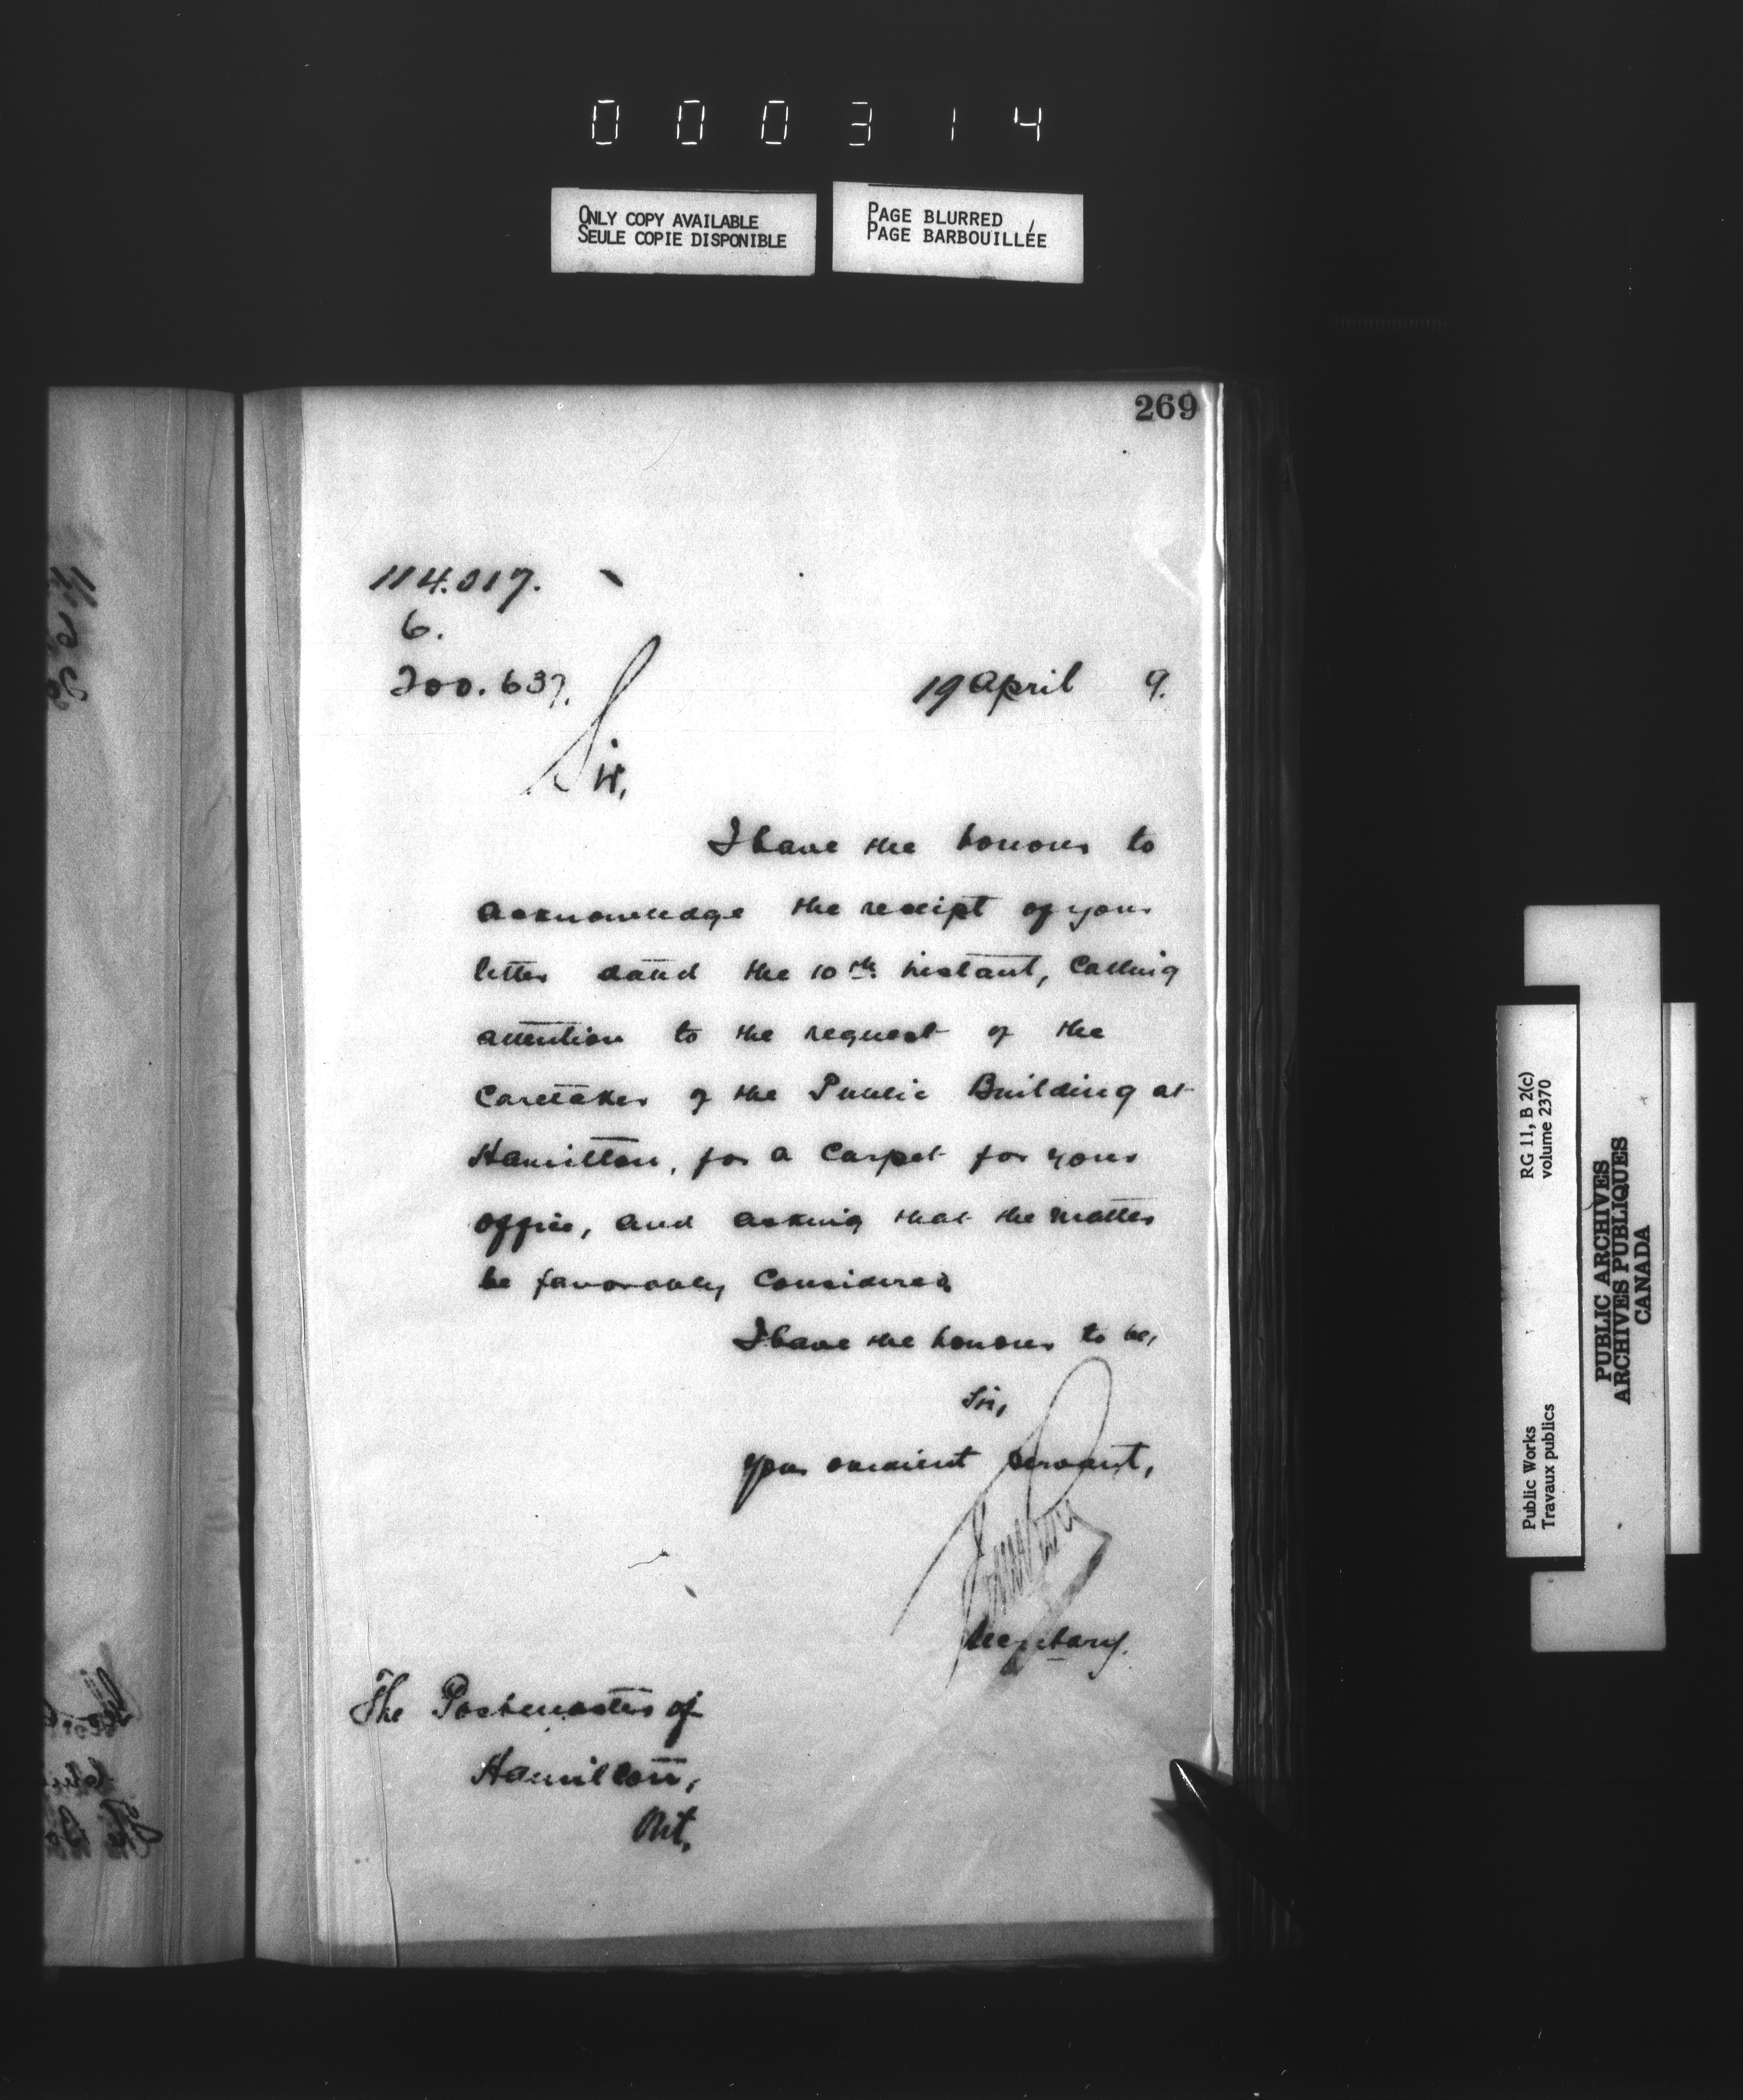 000314
ONLY COPY AVAILABLE
SEULE COPIE DISPONIBLE
PAGE BLURRED
PAGE BARBOUILLÉE
269
114.017.
6.
200.637.
19 April 9.
Sir,
I have the honour to
acknowledge the receipt of your
letter dated the 10th instant, calling
attention to the request of the
Caretaker of the Public Building at
Hamilton, for a carpet for your
office, and asking that the matter
be favorably considered
I have the honour to be,
Sir,
your obedient servant,
Secretary.
The Postmaster of
Hamilton,
Ont.
Public Works
Travaux publics
RG 11, B 2(c)
volume 2370
PUBLIC ARCHIVES
ARCHIVES PUBLIQUES
CANADA